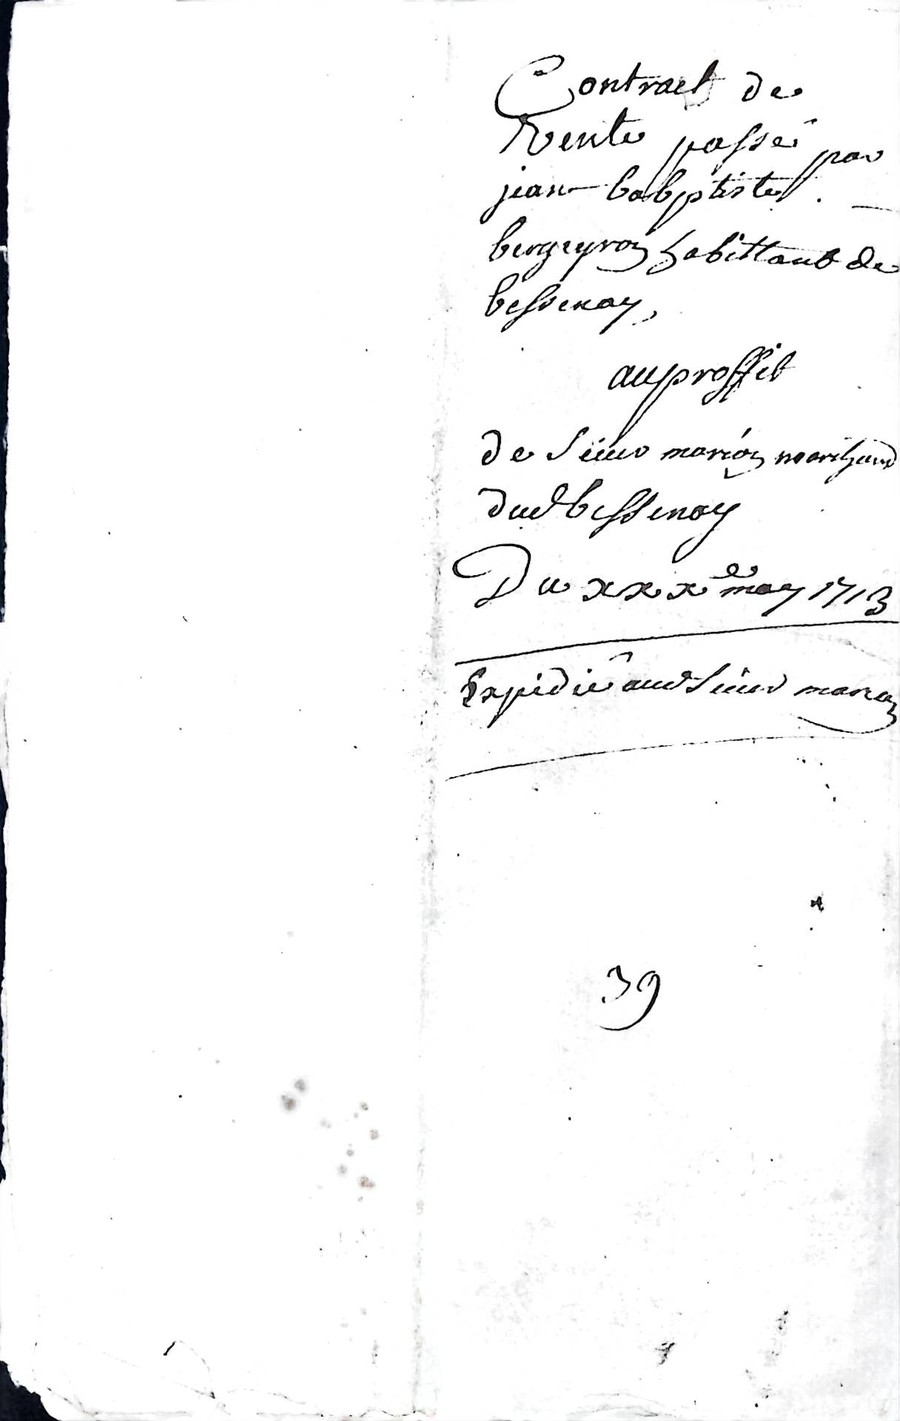 Contract de
vente passé par
jean babptiste
bergeyron habittant de
bessenay,
au proffit
de sieur marion marchand
dud bessenay
Du xxx e may 1713
Expédié aud sieur marion
39